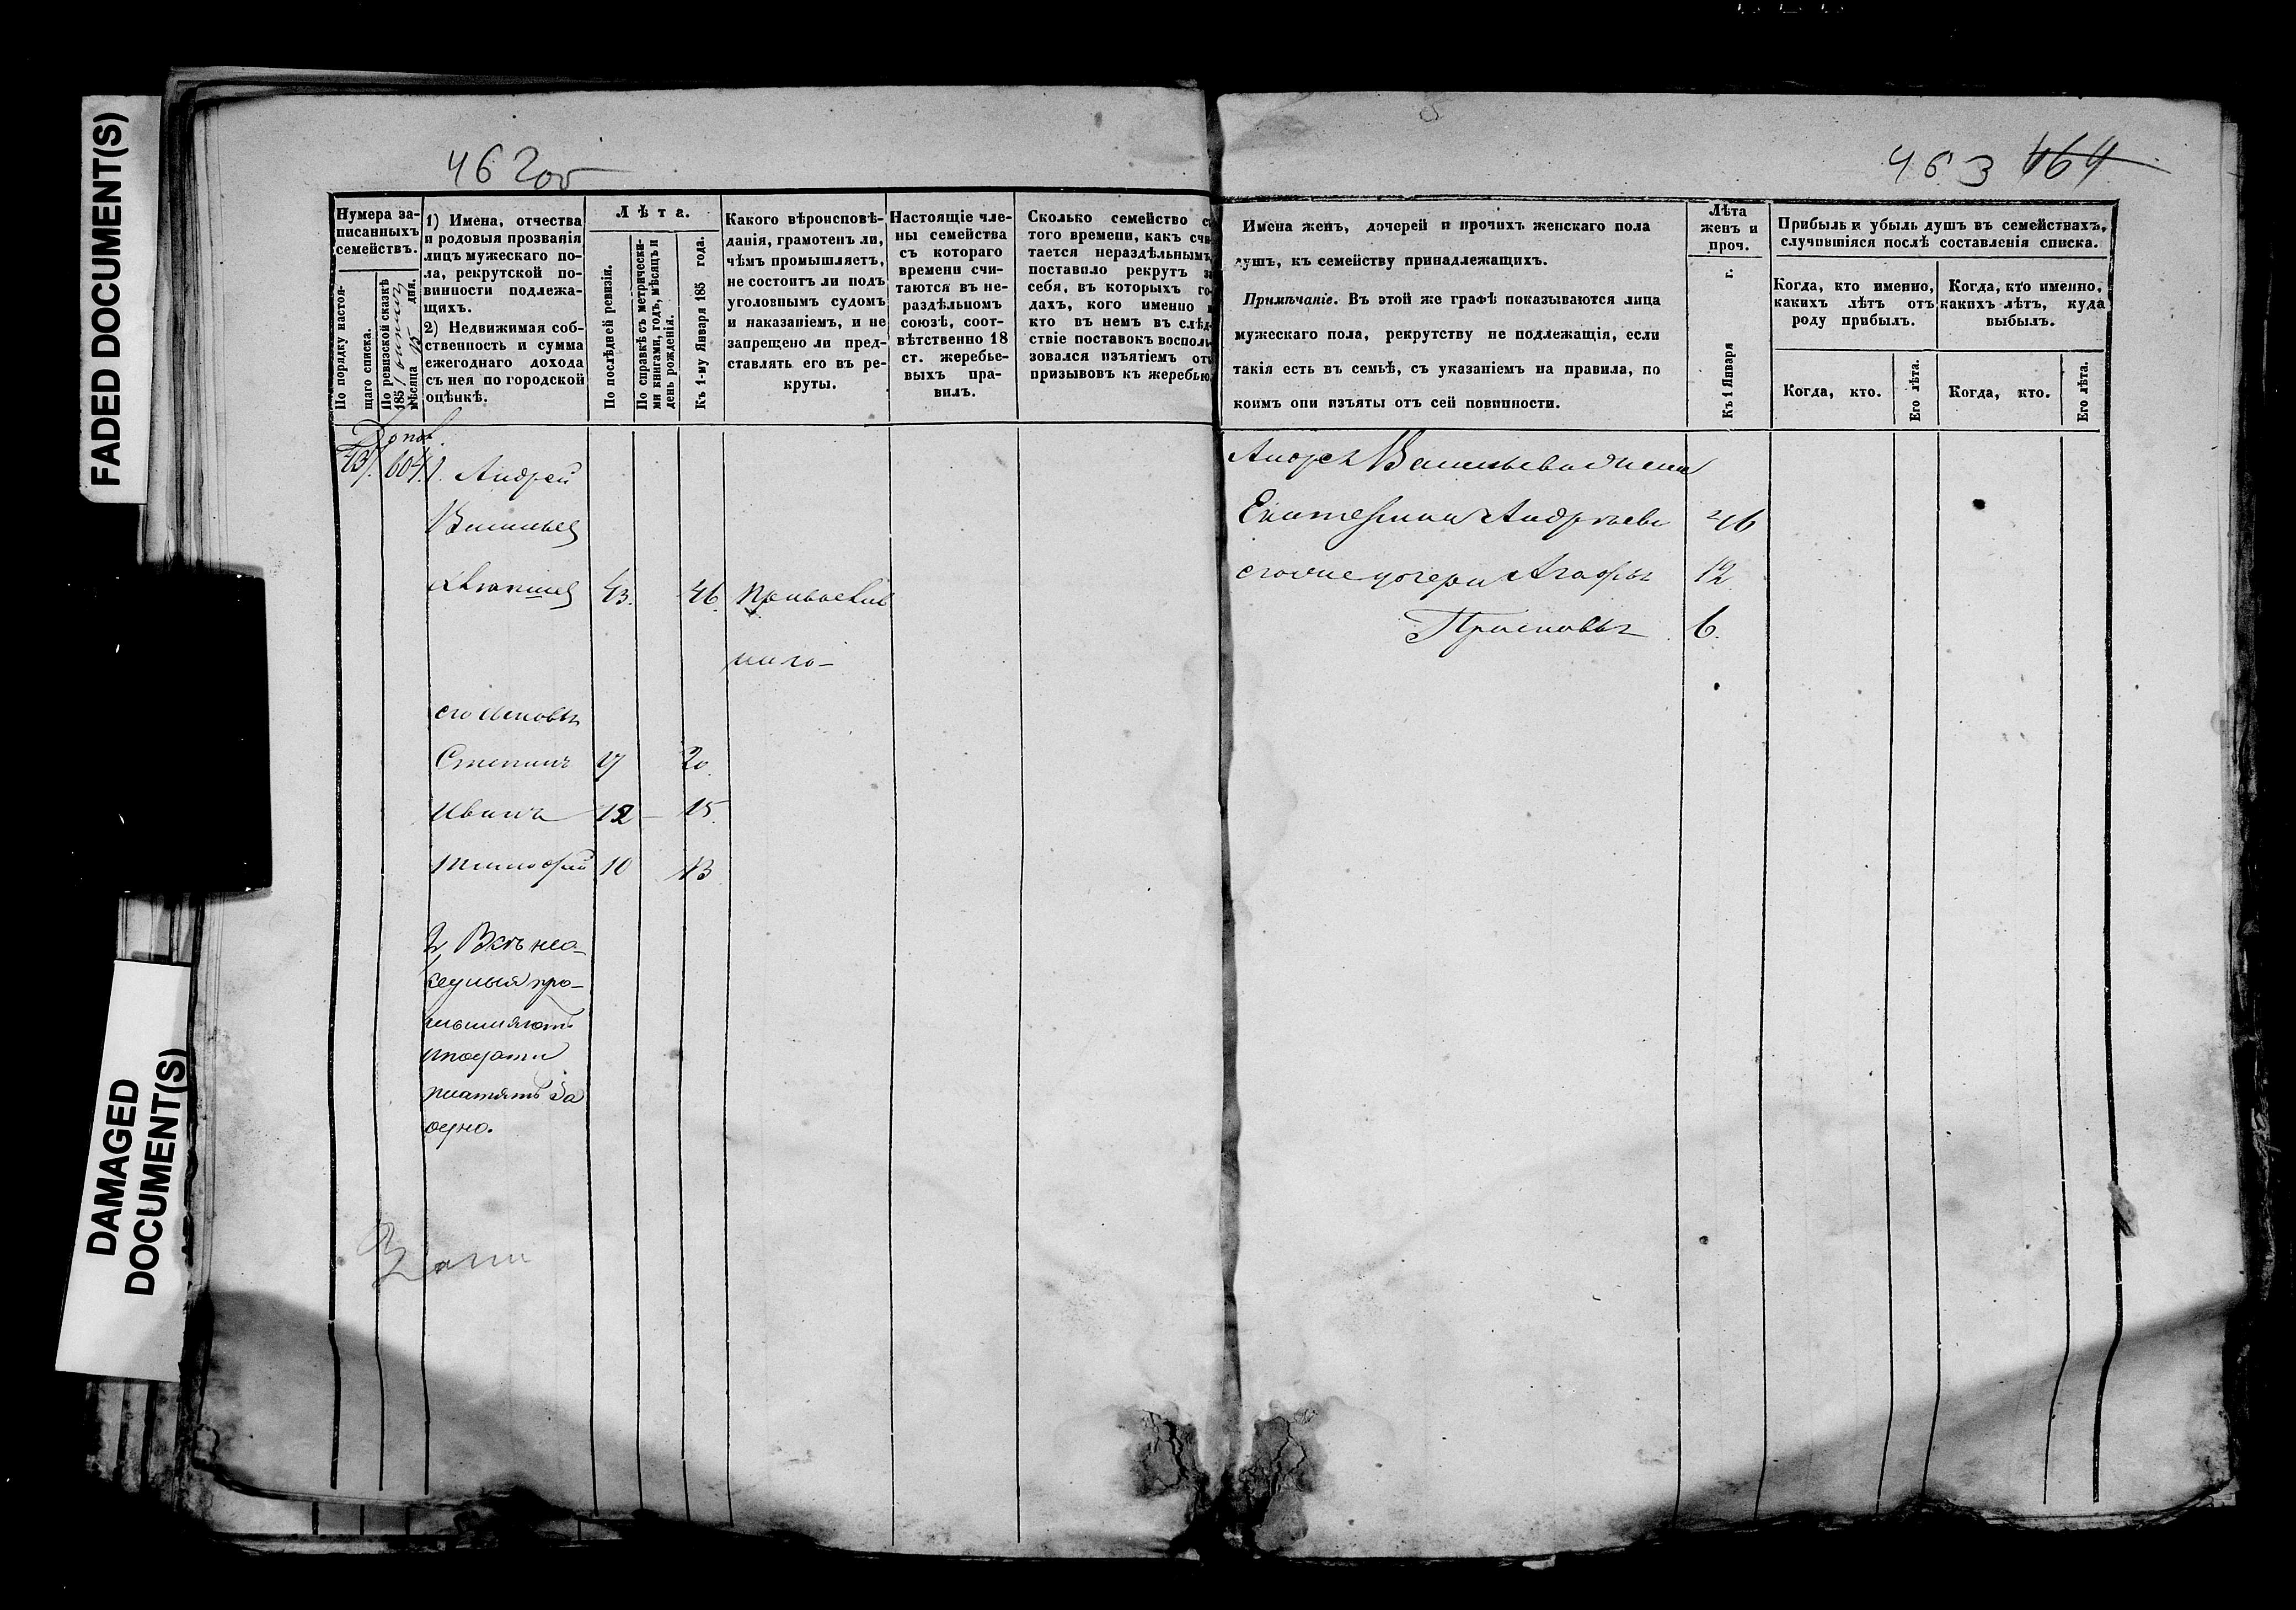 FADED DOCUMENT(S)
DAMAGED
DOCUMENT(S)
462об
Нумера за-
писанныхъ
семействъ.
По порядку настоя-
щаго списка.
По ревизской сказкѣ
185
мѣсяца 15 дня.
1) Имена, отчества
и родовыя прозванія
лицъ мужескаго по-
ла, рекрутской по-
винности подлежа-
щихъ.
2) Недвижимая соб-
ственность и сумма
ежегоднаго дохода
съ нея по городской
оцѣнкѣ.
Лѣта.
По послѣдней ревизіи.
По справкѣ съ метрически-
ми книгами, годъ, мѣсяцъ и
день рожденія.
Къ 1-му Января 185 года.
Какого вѣроисповѣ-
данія, грамотенъ ли,
чѣмъ промышляетъ,
не состоитъ ли подъ
уголовнымъ судомъ
и наказаніемъ, и не
запрещено ли пред-
ставлять его въ ре-
круты.
Настоящіе чле-
ны семейства
съ котораго
времени счи-
таются въ не-
раздѣльномъ
союзѣ, соот-
вѣтственно 18
ст. жеребье-
выхъ пра-
вилъ.
Сколько семейство съ
того времени, какъ счи-
тается нераздѣльнымъ
поставило рекрутъ за
себя, въ которыхъ го-
дахъ, кого именно и
кто въ немъ въ слѣд-
ствіе поставокъ восполь-
зовался изъятіемъ отъ
призывовъ къ жеребью.
604. 1. Андрей
Васильев
43. 46. Православ
наго-
его сыновья
Степанъ 17 20.
Иванъ 12 - 15.
Тимофей 10 13
2, Всѣ нео-
седлыя про-
мышляютъ
и подати
платятъ за
одно.
463 464
Имена женъ, дочерей и прочихъ женскаго пола
душъ, къ семейству принадлежащихъ.
Примѣчаніе. Въ этой же графѣ показываются лица
мужескаго пола, рекрутству не подлежащія, если
такія есть въ семьѣ, съ указаніемъ на правила, по
коимъ они изъяты отъ сей повинности.
Лѣта
женъ и
проч.
Къ 1 Января г.
Прибыль и убыль душъ въ семействахъ,
случившіяся послѣ составленія списка.
Когда, кто именно,
какихъ лѣтъ отъ
роду прибылъ.
Когда, кто именно,
какихъ лѣтъ, куда
выбылъ.
Когда, кто.
Его лѣта.
Когда, кто.
Его лѣта.
Андрея Васильева жена
Екатерина Андреева 46
его же дочери Агафья 12
Прасковья 6.